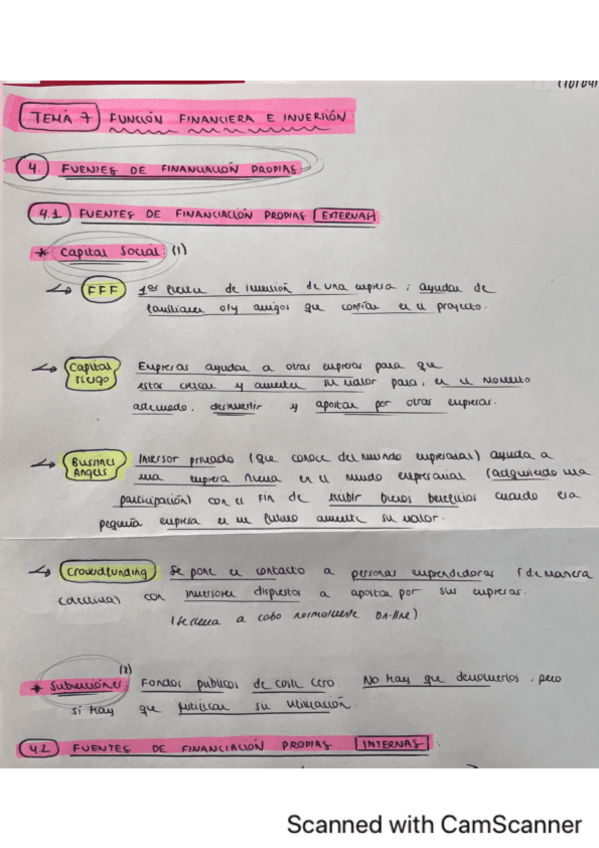 TEMA 7 FUNCIÓN FINANCIERA E INVERSIÓN
4. FUENTES DE FINANCIACIÓN PROPIAS
4.1 FUENTES DE FINANCIACIÓN PROPIAS EXTERNAS
* Capital Social (1)
FFF 1ªs fuentes de inversión de una empresa; ayudan de
familiares o/y amigos que confían en el proyecto.
Capital riesgo Empresas ayudan a otras empresas para que
estas crezcan y aumenten su valor para, en el momento
adecuado, desinvertir y apostar por otras empresas.
Bussines Angels Inversor privado (que conoce del mundo empresarial) ayuda a
una empresa nueva en el mundo empresarial (adquiriendo una
participación) con el fin de recibir buenos beneficios cuando esa
pequeña empresa en un futuro aumente su valor.
Crowdfunding Se pone en contacto a personas emprendedoras (de manera
colectiva) con inversores dispuestos a apostar por sus empresas.
(se lleva a cabo normalmente on-line)
(2)
* Subvenciones Fondos públicos de coste cero. No hay que devolverlos, pero
sí hay que justificar su utilización.
4.2 FUENTES DE FINANCIACIÓN PROPIAS INTERNAS
Scanned with CamScanner